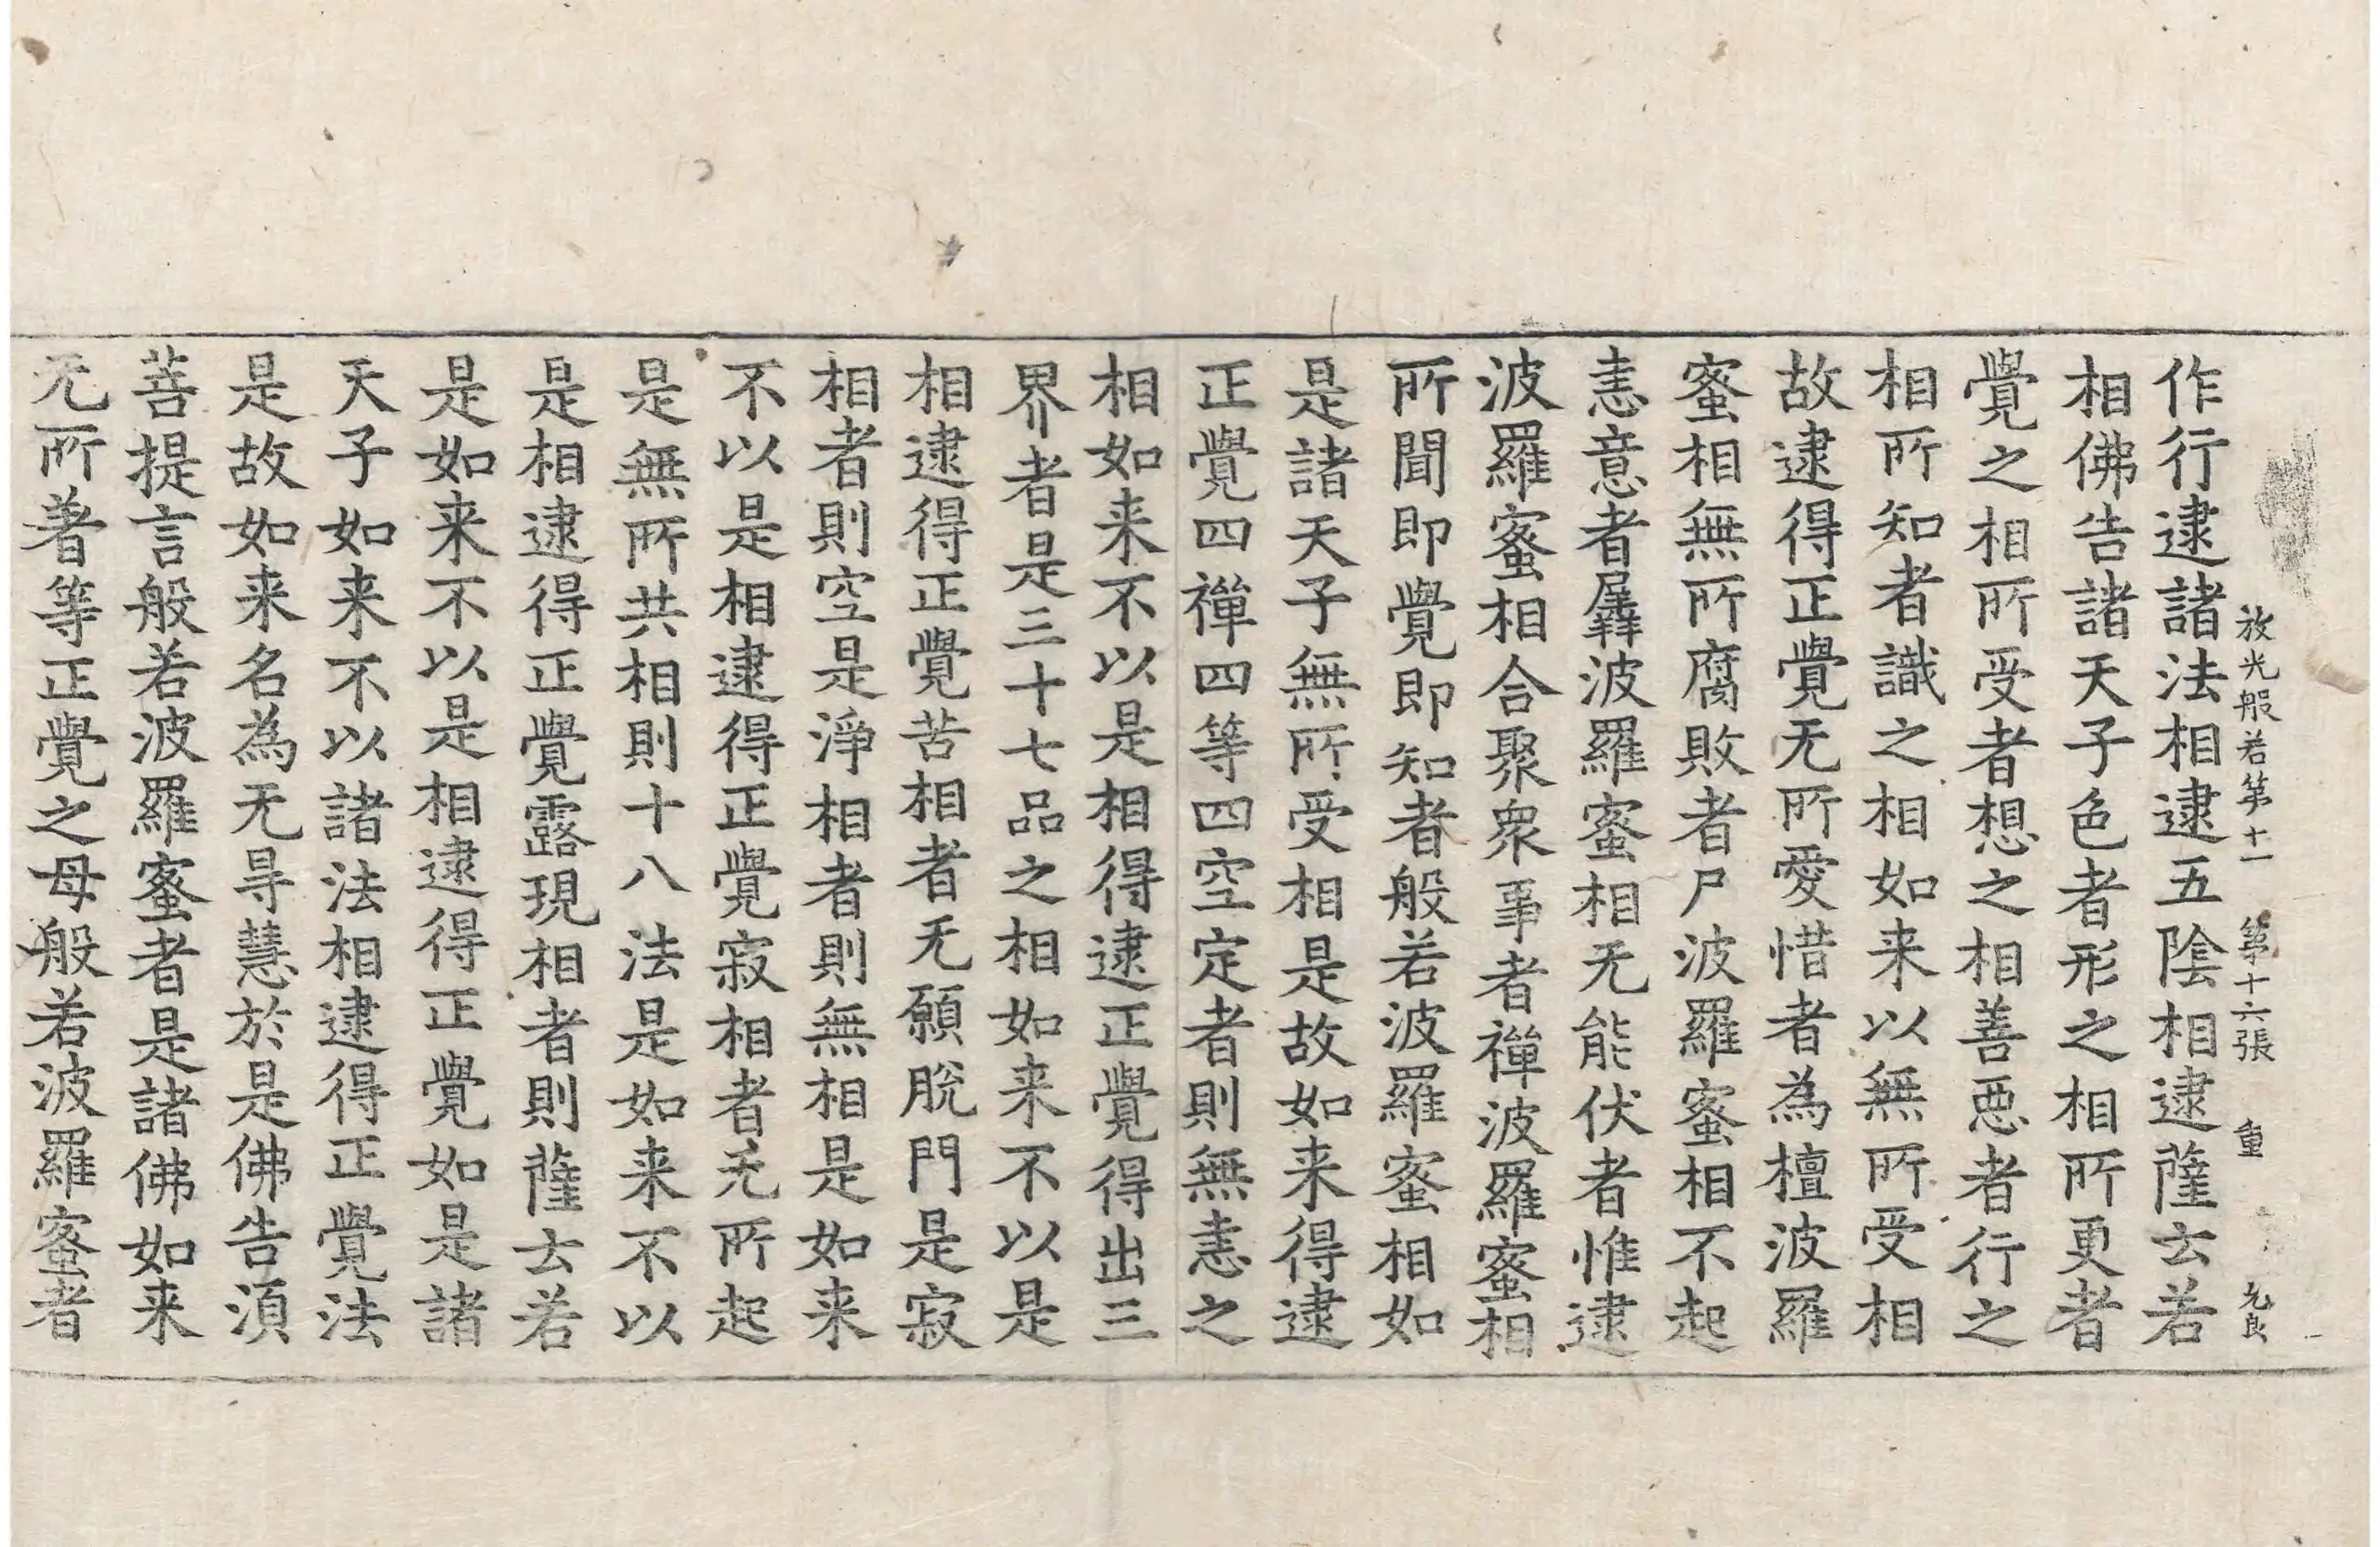 放光般若第十一 第十六張 重 允良
作行逮諸法相逮五陰相逮薩云若
相佛告諸天子色者形之相所更者
覺之相所受者想之相善惡者行之
相所知者識之相如来以無所受相
故逮得正覺无所愛惜者為檀波羅
蜜相無所腐敗者尸波羅蜜相不起
恚意者羼波羅蜜相无能伏者惟逮
波羅蜜相合聚衆事者禪波羅蜜相
所聞即覺即知者般若波羅蜜相如
是諸天子無所受相是故如来得逮
正覺四禪四等四空定者則無恚之
相如来不以是相得逮正覺得出三
界者是三十七品之相如来不以是
相逮得正覺苦相者无願脫門是寂
相者則空是淨相者則無相是如来
不以是相逮得正覺寂相者无所起
是無所共相則十八法是如来不以
是相逮得正覺露現相者則薩云若
是如来不以是相逮得正覺如是諸
天子如来不以諸法相逮得正覺法
是故如来名為无㝵慧於是佛告湏
菩提言般若波羅蜜者是諸佛如来
无所著等正覺之母般若波羅蜜者